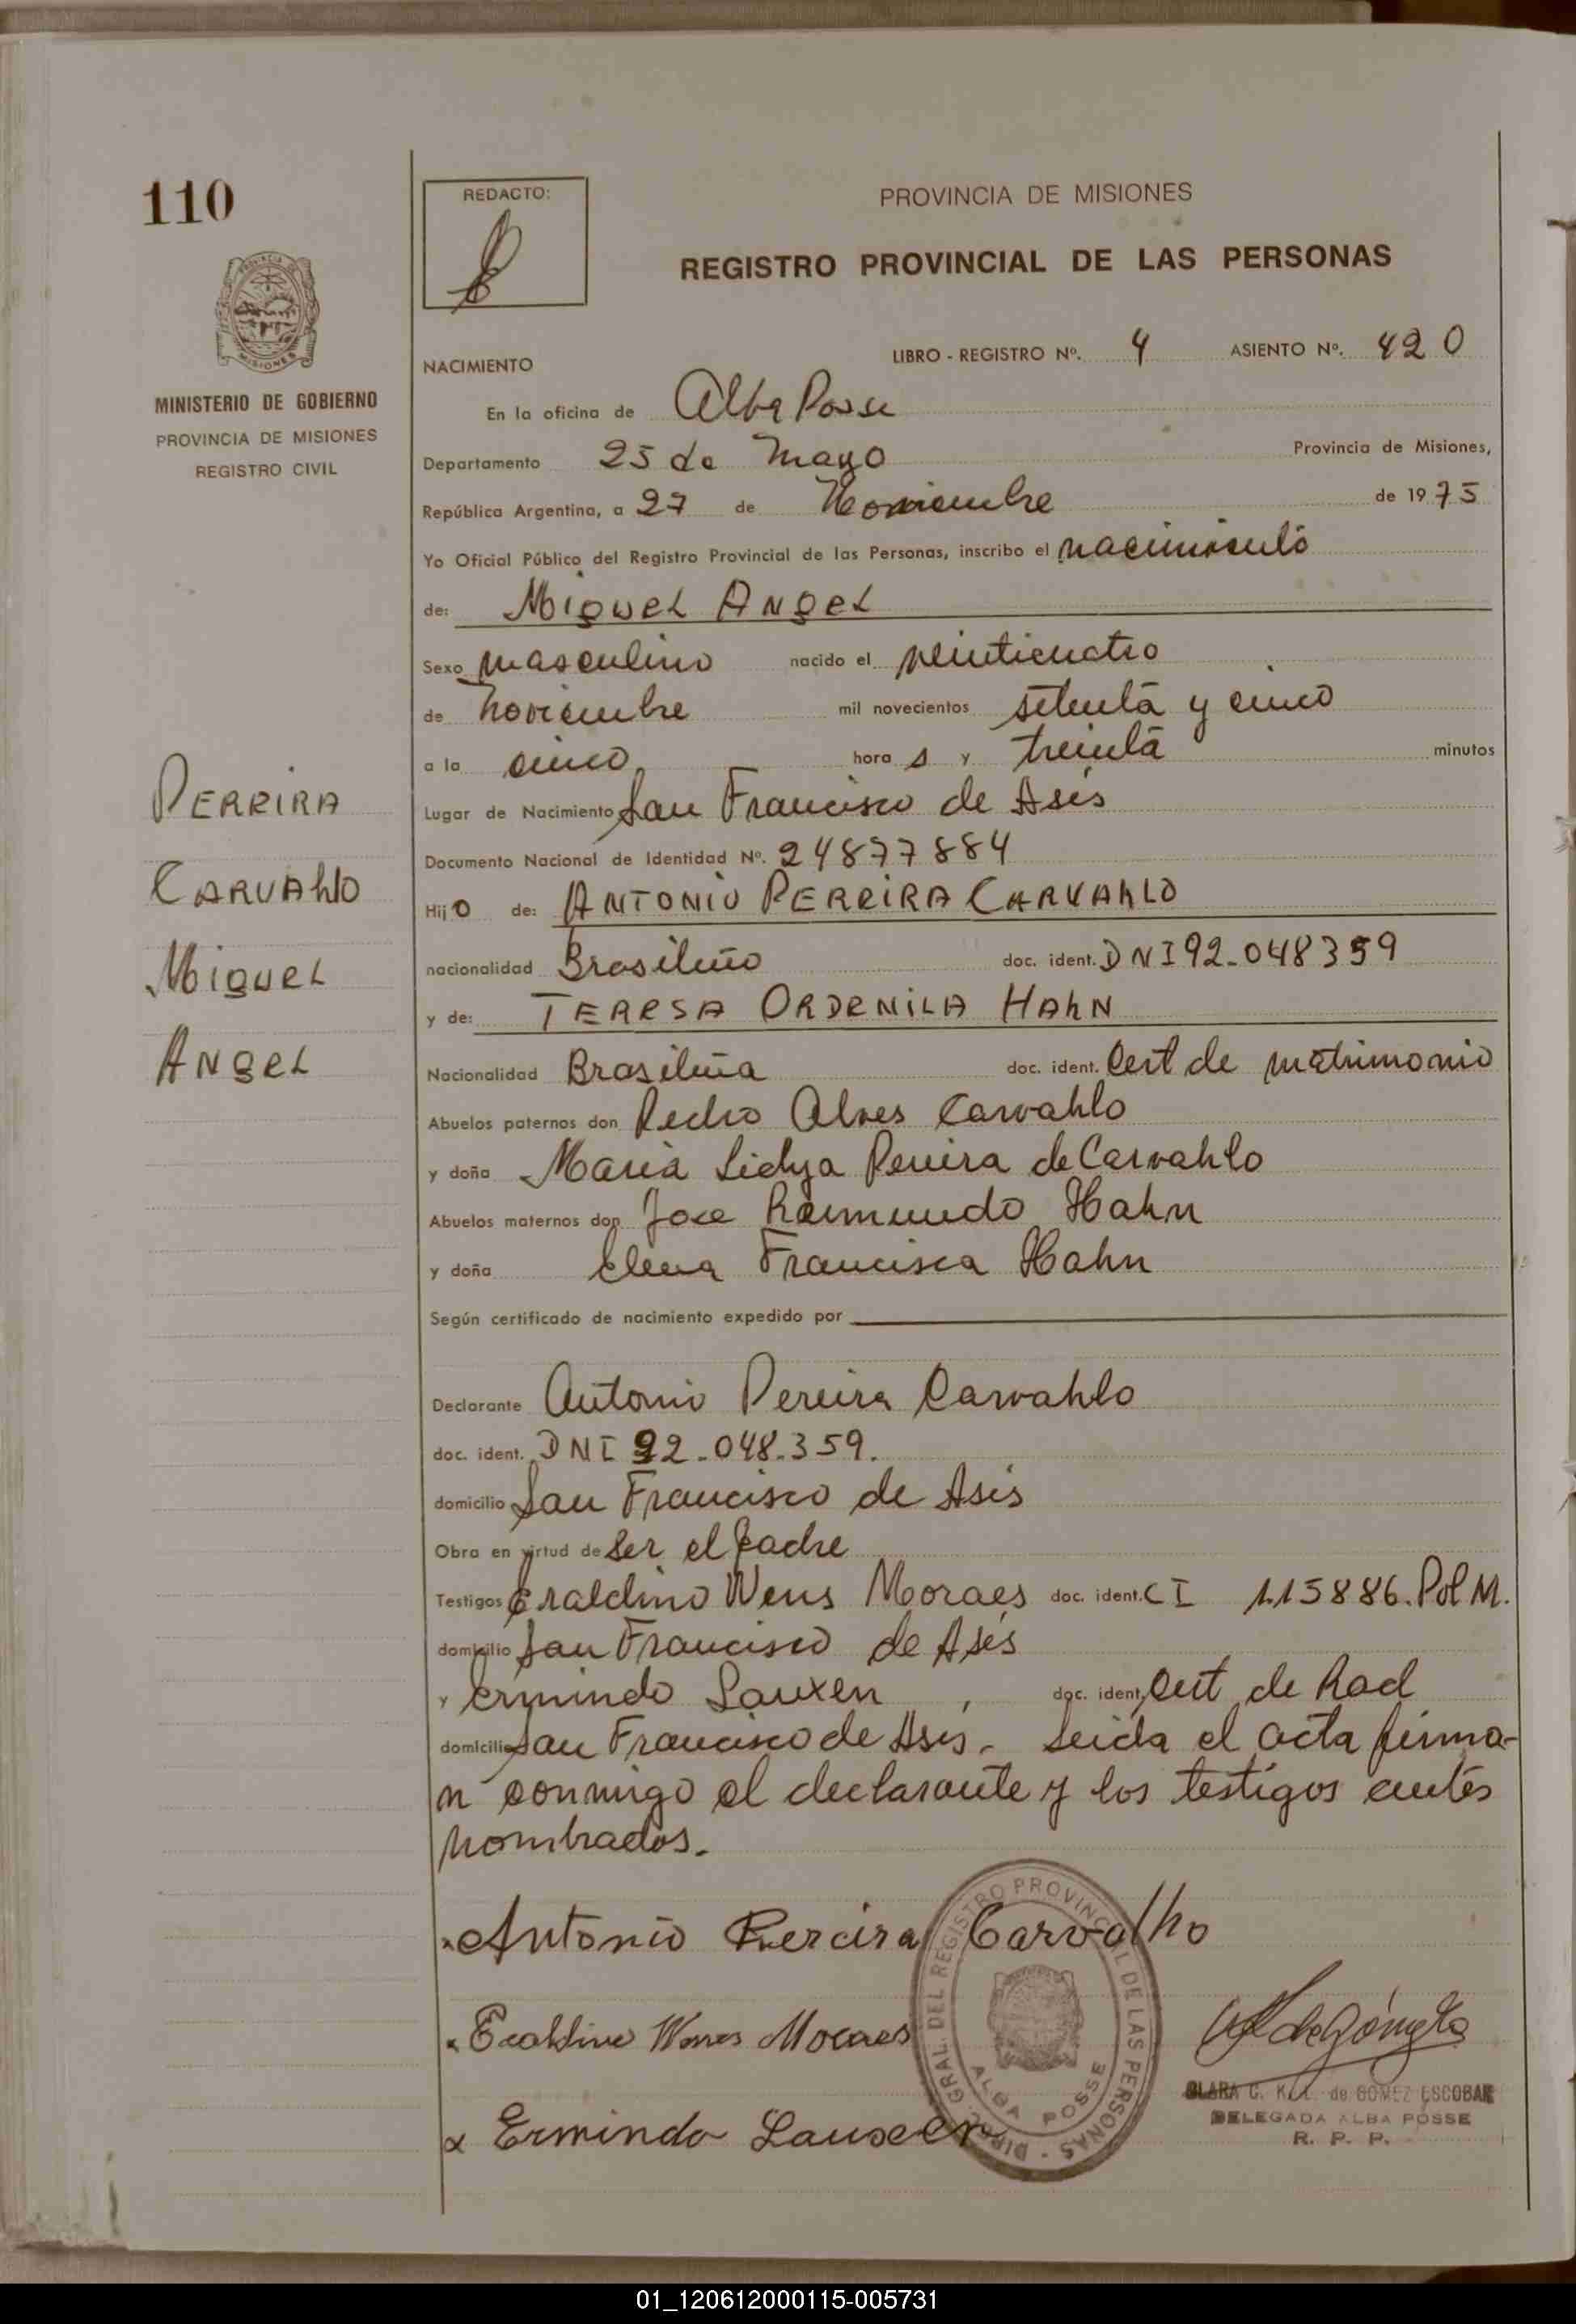 110
REDACTO:
PROVINCIA DE MISIONES
REGISTRO PROVINCIAL DE LAS PERSONAS
MINISTERIO DE GOBIERNO
PROVINCIA DE MISIONES
REGISTRO CIVIL
NACIMIENTO
LIBRO - REGISTRO Nº. 4 ASIENTO Nº. 420
En la oficina de Alba Posse
Departamento 25 de Mayo Provincia de Misiones,
República Argentina, a 27 de Noviembre de 1975
Yo Oficial Público del Registro Provincial de las Personas, inscribo el nacimiento
de: MIGUEL ANGEL
Sexo masculino nacido el veinticuatro
de noviembre mil novecientos setenta y cinco
a la cinco hora s y treinta minutos
PEREIRA
CARVAHLO
MIGUEL
ANGEL
Lugar de Nacimiento San Francisco de Asís
Documento Nacional de Identidad Nº. 24877884
Hijo de: ANTONIO PEREIRA CARVAHLO
nacionalidad Brasileño doc. ident. DNI 92-048359
y de: TERESA ORDENILA HAHN
Nacionalidad Brasileña doc. ident. Cert de matrimonio
Abuelos paternos don Pedro Alves Carvahlo
y doña Maria Lidya Pereira de Carvahlo
Abuelos maternos don Jose Raimundo Hahn
y doña Elena Francisca Hahn
Según certificado de nacimiento expedido por
Declarante Antonio Pereira Carvahlo
doc. ident. DNI 92-048-359.
domicilio San Francisco de Asís
Obra en virtud de ser el padre
Testigos Eraldino Wens Moraes doc. ident. CI 115886. Pol M.
domicilio San Francisco de Asís
y Ermindo Lauxen, doc. ident. Cert de Rad
domicilio San Francisco de Asís. Leida el acta firma-
n conmigo el declarante y los testigos antes
nombrados.
Antonio Pereira Carvalho
Eraldino Moraes
Ermindo Lauxen
DIREC. GRAL. DEL REGISTRO PROVINCIAL DE LAS PERSONAS -
ALBA POSSE
CLARA C. K. L. de GOMEZ ESCOBAR
DELEGADA ALBA POSSE
R. P. P.
01_120612000115-005731